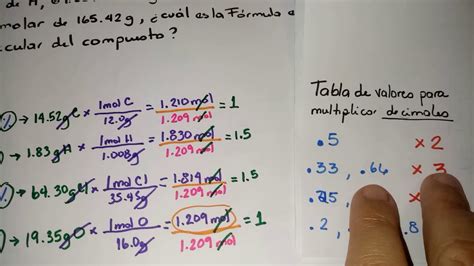 de H,
molar de 165.42g, ¿cuál es la Fórmula
cular del compuesto?
→ 14.52gC × 1mol C / 12.0g = 1.210 mol / 1.209 mol = 1
→ 1.83gH × 1mol H / 1.008g = 1.830 mol / 1.209 mol = 1.5
→ 64.30gCl × 1mol Cl / 35.45g = 1.819 mol / 1.209 mol = 1.5
→ 19.35gO × 1mol O / 16.0g = 1.209 mol / 1.209 mol = 1
Tabla de valores para
multiplicar decimales
.5 × 2
.33, .66 × 3
.25, ×
.2, .8